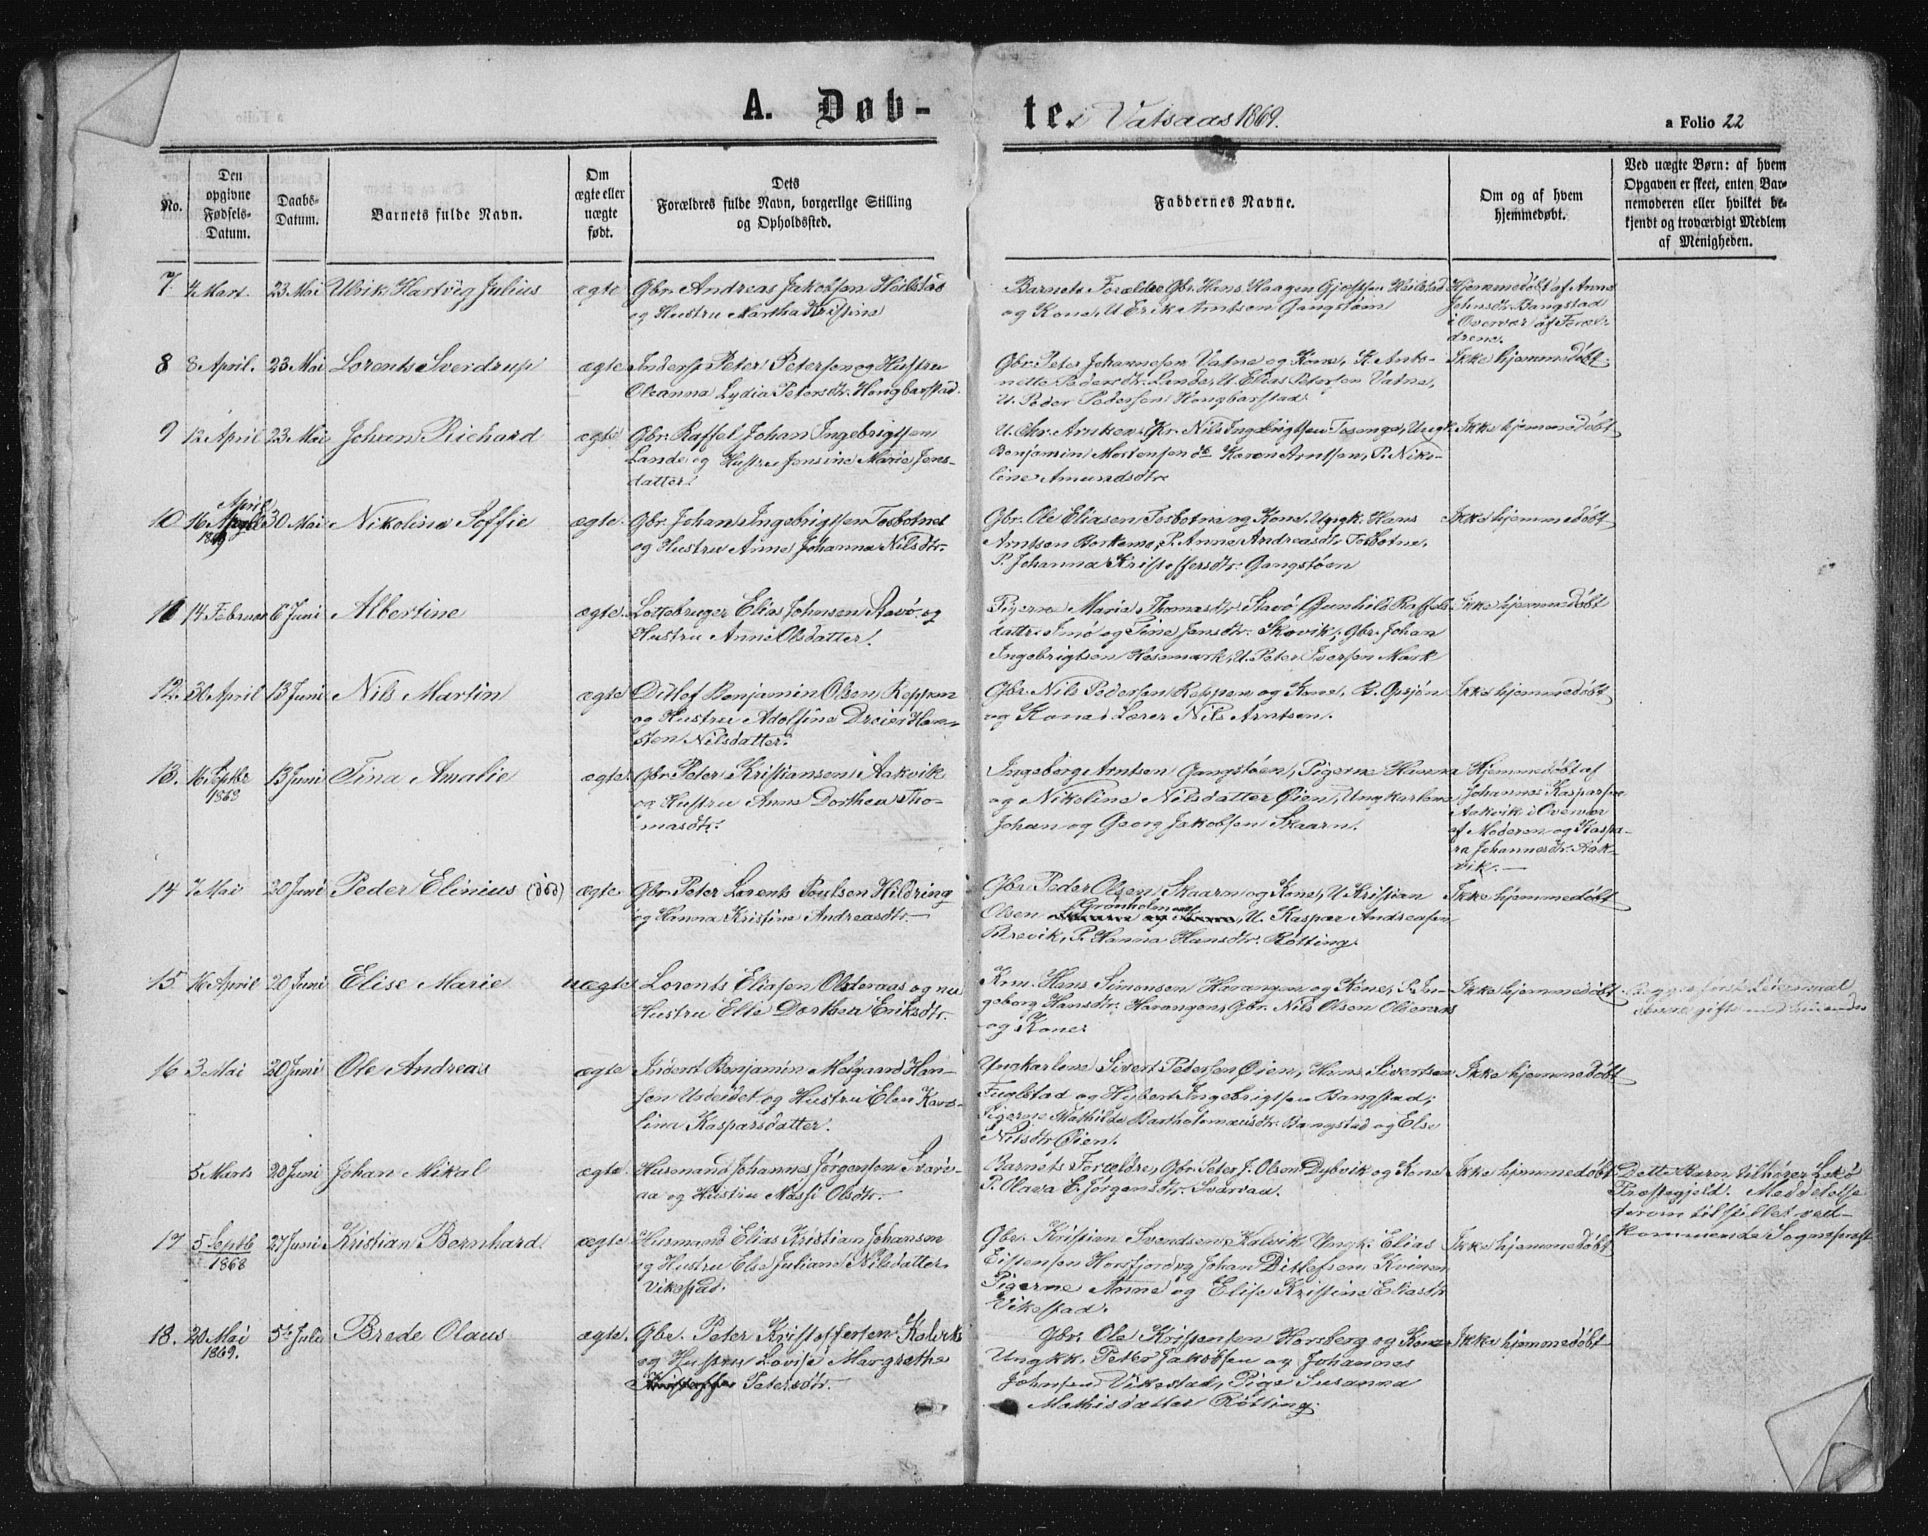 A. Døb-
te i Vatsaas 1869.
a Folio 22
No.
Den opgivne Fødsels-Datum.
Daabs-Datum.
Barnets fulde Navn.
Om ægte eller uægte født.
Dets Forældres fulde Navn, borgerlige Stilling og Opholdssted.
Faddernes Navne.
Om og af hvem hjemmedøbt.
Ved uægte Børn: af hvem Opgaven er skeet, enten Barnemoderen eller hvilket bekjendt og troværdigt Medlem af Menigheden.
7 4 Mart. 23 Mai Ulrik Hartvig Julius ægte Gbr. Andreas Jakobsen Heilstad
og Hustru Martha Kristine
Barnets Forældre, Gbr. Hans Haagen Heilstad
og Kone, U. Erik Arntsen Gangstøen
Hjemmedøbt af Anne
Johnsdtr. Bangstad
i Overvær af Foræl-
drene.
8 8 April. 23 Mai Lorents Sverdrup ægte Inderst Peter Petersen og Hustru
Oleanna Lydia Petersdtr. Hongbarstad.
Gbr. Peter Johannesen Vatne og Kone, P. Anto-
nette Pedersdtr. Lande, U. Elias Petersen Vatne,
U. Peder Pedersen Hongbarstad.
Ikke hjemmedøbt
9 12 April 23 Mai Johan Richard ægte Gbr. Raffel Johan Ingebrigtsen
Lande og Hustru Jensine Marie Jens-
datter.
U. Chr. Gbr. Nils Ingebrigtsen Tosenge, Ungk.
Benjamin Mortensen Karen Arntsen, P. Niko-
line Amundsdtr.
Ikke hjemmedøbt
10 16 April 1869 30 Mai Nikolina Soffie ægte. Gbr. Johan Ingebrigtsen Tosbotnet
og Hustru Anne Johanna Nilsdtr.
Gbr. Ole Eliasen Tosbotne og Kone, Ungk. Hans
Arntsen Borkamo, P. Anne Andreasdtr. Tosbotne,
P. Johanna Kristoffersdtr. Gangstøen
Ikke hjemmedøbt
11 14 Februar 6 Juni Albertine ægte. Lottebruger Elias Johnsen Stavø og
Hustru Anne Olsdatter.
Pigerne Marie Thomasdtr. Stavø Gunhild Raffels-
datter Imø og Tine Jensdtr. Skavik, Gbr. Johan
Ingebrigtsen Hesemark, U. Peter Iversen Mark
Ikke hjemmedøbt
12. 30 April 13 Juni Nils Martin ægte Ditlef Benjamin Olsen Reppen
og Hustru Adolfine Dreier Han-
sten Nilsdatter.
Gbr. Nils Pedersen Reppen og Kone, B. Opsjøn
og Kone, Lærer Nils Arntsen.
Ikke hjemmedøbt
13. 16 Septbr 1868 13 Juni Tina Amalie ægte. Gbr. Peter Kristiansen Aakvik
og Hustru Anne Dorthea Tho-
masdtr.
Ingeborg Arntsen Gangstøen, Pigerne Hanna
og Nikoline Nilsdatter Øien, Ungkarlene
Johan og Georg Jakobsen Skaarn.
Hjemmedøbt af
Johannes Kaspersen
Aakvik i Overvær
af Moderen og Kaspa-
ra Johannesdtr. Aak-
vik.
14 7 Mai 20 Juni Peder Elinius (død) ægte. Gbr. Peter Lorents Poulsen Hildring
og Hanna Kristine Andreasdtr.
Gbr. Peder Olsen Skaarn og Kone, U. Kristian
Olsen Grønholmen, U. Kaspar Andreasen
Brevik, P. Hanna Hansdtr. Røtting.
Ikke hjemmedøbt
15 16 April 20 Juni Elise Marie uægte Lorents Eliasen Olderaas og nu
Hustru Else Dorthea Eriksdtr.
Hans Simonsen Harangen og Kone, P. In-
geborg Hansdtr. Harangen, Gbr. Nils Olsen Olderaas
og Kone
Ikke hjemmedøbt
Begges første Leiermaal
gifte med hinanden
16 3 Mai 20 Juni Ole Andreas ægte Inderst Benjamin Melgaard Han-
sen Urdeidet og Hustru Elen Karo-
lina Kasparsdatter.
Ungkarlene Sivert Pedersen Øien, Hans Sivertsen
Fuglstad og Hybert Ingebrigtsen Bangstad,
Pigerne Mathilde Bartholomæusdtr. Bangstad og Else
Nilsdtr. Øien.
Ikke hjemmedøbt
5 Marts 20 Juni Johan Mikal ægte. Husmand Johannes Jørgensen Svarv-
aa og Hustru Massi Olsdtr.
Barnets Forældre, Gbr. Peter J. Olsen Dybvik og Kone
P. Olava E. Jørgensdtr. Svarvaa.
Ikke hjemmedøbt
Dette Barn tilhører Lekø
Præstegjeld. Meddelelse
derom tilstillet ved-
kommende Sognepræst
17 5 Septb 1868 27 Juni Kristian Bernhard ægte Husmand Elias Kristian Johansen
og Hustru Else Juliane Nilsdatter
Vikestad.
Gbr. Kristian Svendsen Kalvik Ungk. Elias
Eistensen Horsfjord og Johan Ditlefsen Kvinen
Pigerne Anne og Elise Kristine Eliasdtr.
Vikestad.
Ikke hjemmedøbt
18. 20 Mai 1869. 5te Juli Brede Olaus ægte. Gbr. Peter Kristoffersen Kalvik
og Hustru Lovise Margrethe
Petersdtr.
Gbr. Ole Kristensen Horsberg og Kone
Ungkk. Peter Jakobsen og Johannes
Johnsen Vikestad, Pige Susanna
Mathisdatter Røtting.
Ikke hjemmedøbt